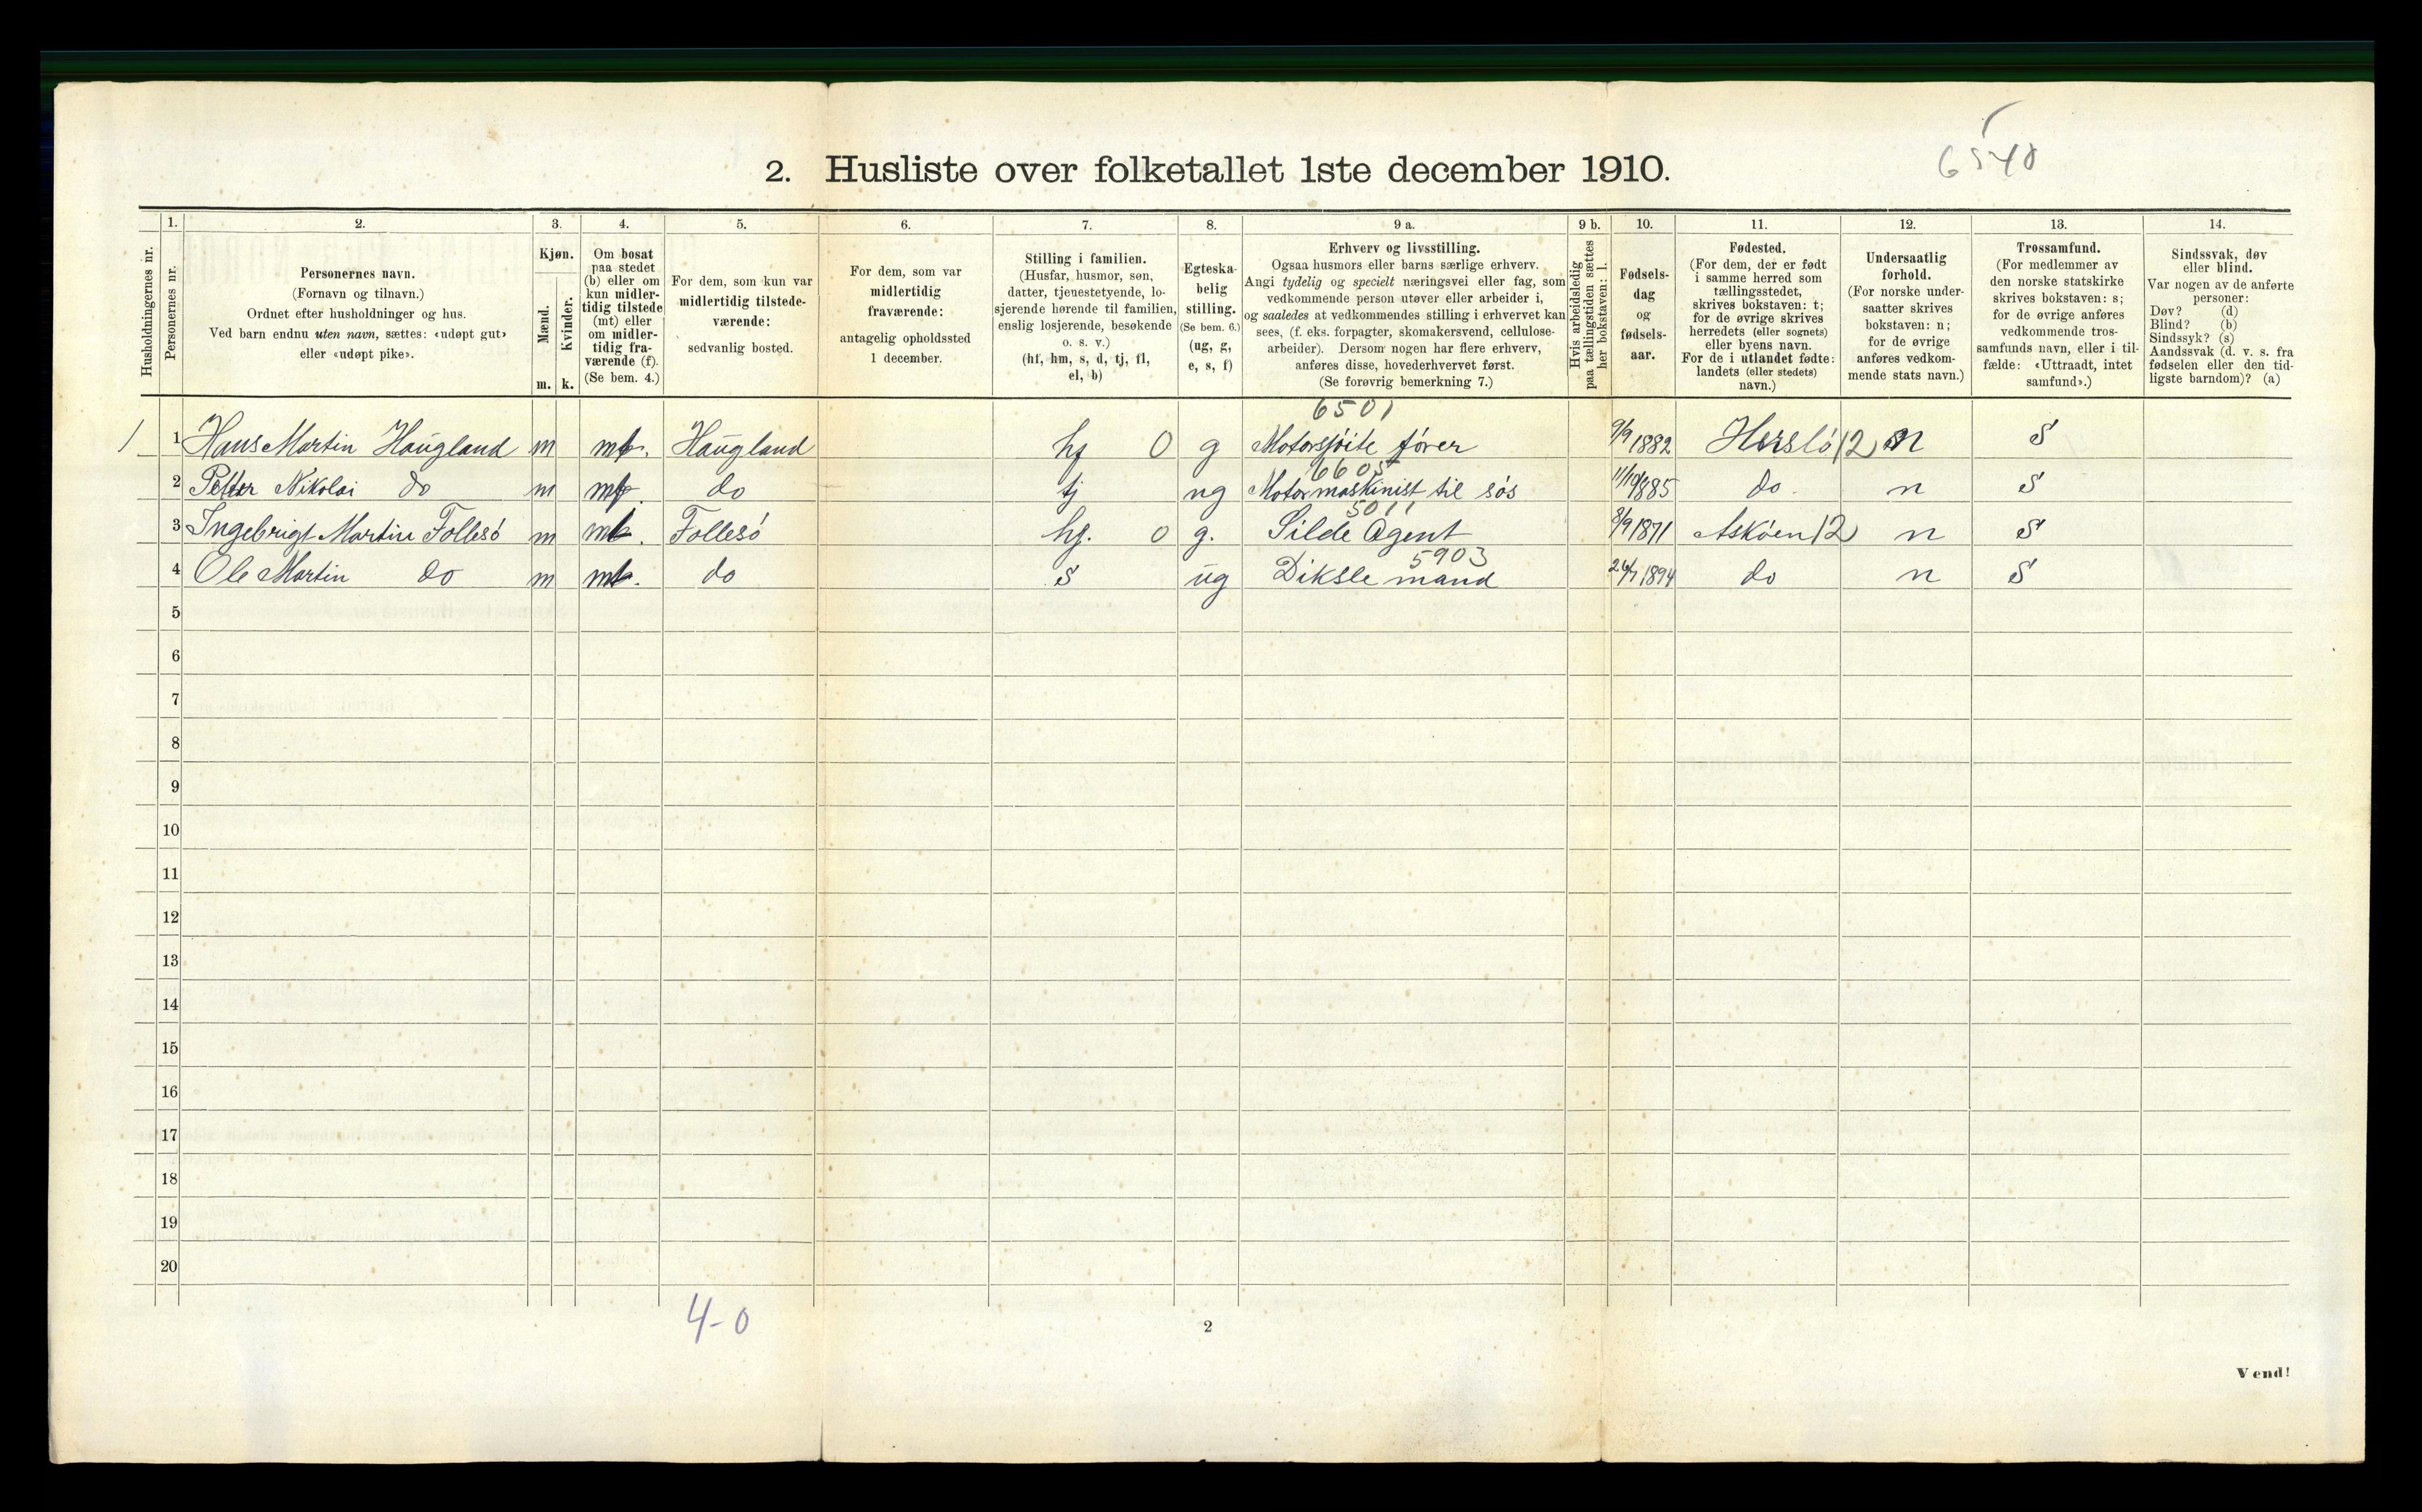 6540
2. Husliste over folketallet 1ste december 1910.
Husholdningernes nr.
1.
Personernes nr.
2.
Personernes navn.
(Fornavn og tilnavn.)
Ordnet efter husholdninger og hus.
Ved barn endnu uten navn, sættes: «udøpt gut»
eller «udøpt pike».
3.
Kjøn.
Mænd.
Kvinder.
m. k.
4.
Om bosat
paa stedet
(b) eller om
kun midler-
tidig tilstede
(mt) eller
om midler-
tidig fra-
værende (f).
(Se bem. 4.)
5.
For dem, som kun var
midlertidig tilstede-
værende:
sedvanlig bosted.
6.
For dem, som var
midlertidig
fraværende:
antagelig opholdssted
1 december.
7.
Stilling i familien.
(Husfar, husmor, søn,
datter, tjenestetyende, lo-
sjerende hørende til familien,
enslig losjerende, besøkende
o. s. v.)
(hf, hm, s, d, tj, fl,
el, b)
8.
Egteska-
belig
stilling.
(Se bem. 6.)
(ug, g,
e, s, f)
9 a.
Erhverv og livsstilling.
Ogsaa husmors eller barns særlige erhverv.
Angi tydelig og specielt næringsvei eller fag, som
vedkommende person utøver eller arbeider i,
og saaledes at vedkommendes stilling i erhvervet kan
sees, (f. eks. forpagter, skomakersvend, cellulose-
arbeider). Dersom nogen har flere erhverv,
anføres disse, hovederhvervet først.
(Se forøvrig bemerkning 7.)
9 b.
Hvis arbeidsledig
paa tællingstiden sættes
her bokstaven: l.
10.
Fødsels-
dag
og
fødsels-
aar.
11.
Fødested.
(For dem, der er født
i samme herred som
tællingsstedet,
skrives bokstaven: t;
for de øvrige skrives
herredets (eller sognets)
eller byens navn.
For de i utlandet fødte:
landets (eller stedets)
navn.)
12.
Undersaatlig
forhold.
(For norske under-
saatter skrives
bokstaven: n;
for de øvrige
anføres vedkom-
mende stats navn.)
13.
Trossamfund.
(For medlemmer av
den norske statskirke
skrives bokstaven: s;
for de øvrige anføres
vedkommende tros-
samfunds navn, eller i til-
fælde: «Uttraadt, intet
samfund».)
14.
Sindssvak, døv
eller blind.
Var nogen av de anførte
personer:
Døv? (d)
Blind? (b)
Sindssyk? (s)
Aandssvak (d. v. s. fra
fødselen eller den tid-
ligste barndom)? (a)
6501
1 1 Hans Martin Haugland m mt. Haugland hf 0 g Motorsjöite förer 9/9 1882 12 n S
6605
2 Petter Nikolai do m mt. do tj ug Motormaskinist til søs 11/10 1885 do. n S
5011
3 Ingebrigt Martin Follesö m mt. Follesö hf. 0 g. Silde Agent 8/9 1871 Asköen 12 n S
5903
4 Ole Martin do m mt. do S ug Diksle mand 26/7 1894 do n S
5
6
7
8
9
10
11
12
13
14
15
16
17
18
19
20
4-0
2
Vend!